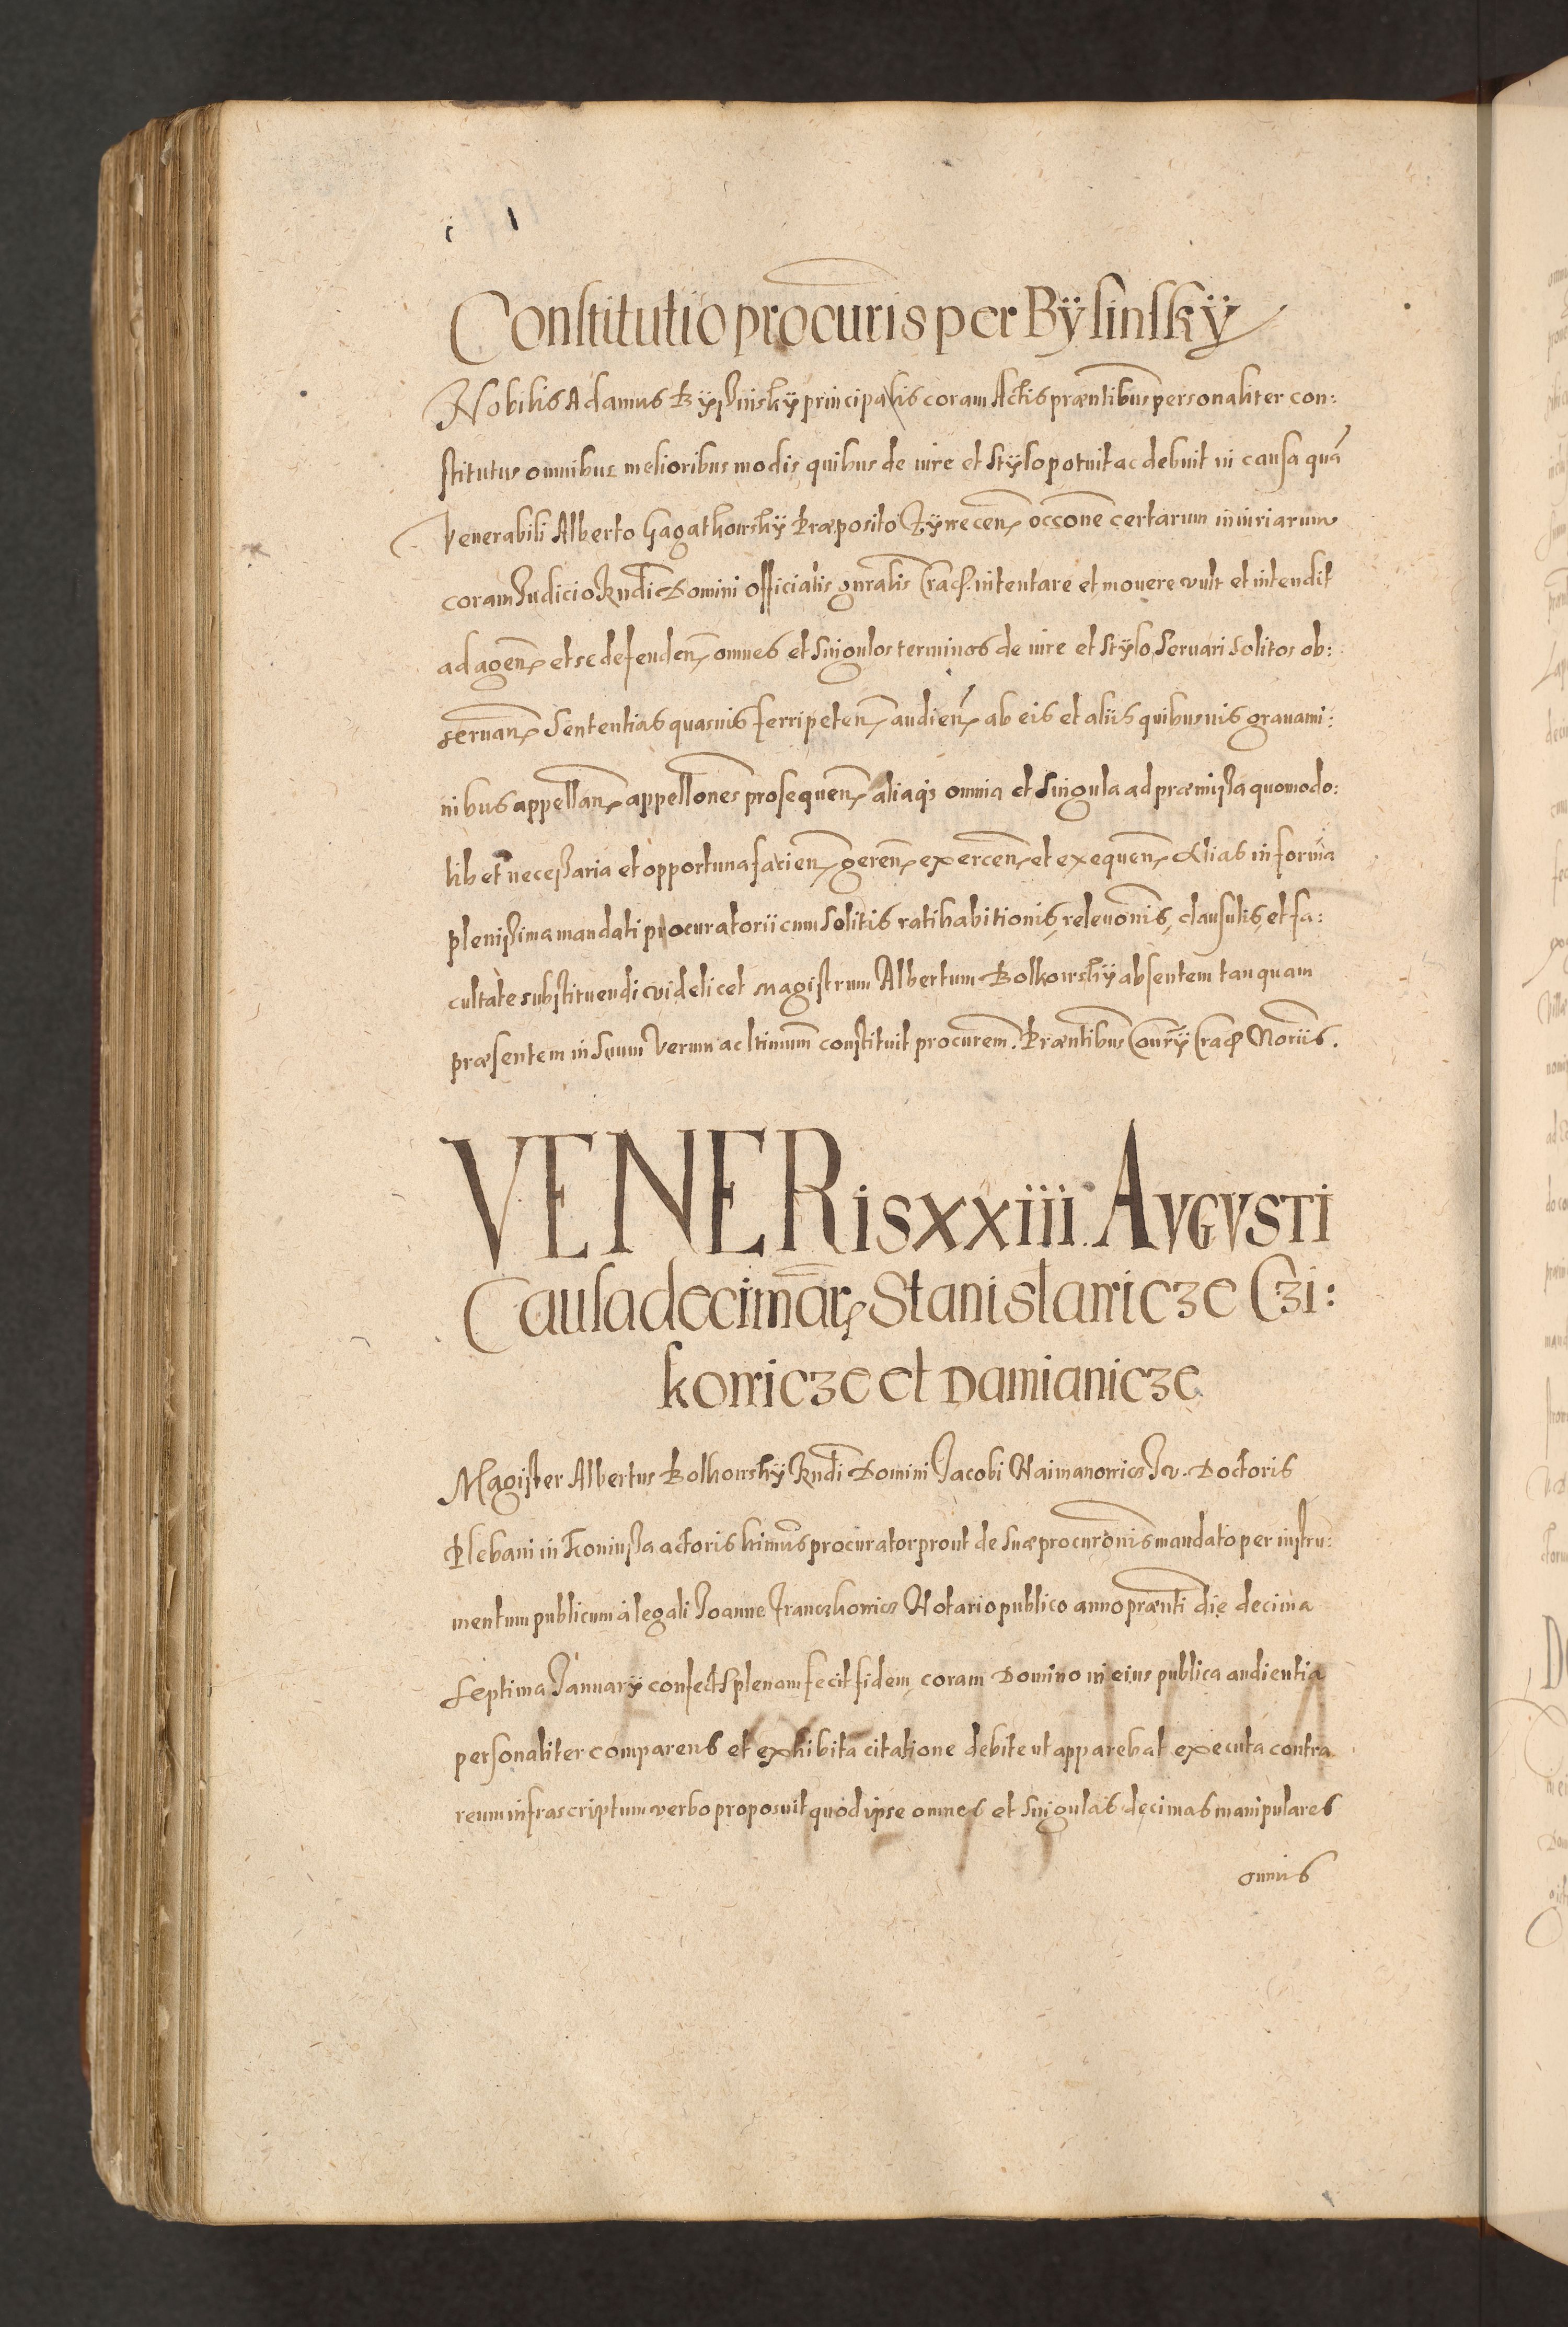 Constitutio procuris per Bÿsinskÿ
Nobilis Adamus Bÿssinskÿ principalis coram Actis præntibus personaliter con:
stitutus omnibus melioribus modis quibus de iure et stÿlo potuit ac debuit in causa quã
Venerabili Alberto Gagatkowskÿ Præposito occone certarum iniuriarum
coram Iudicio Rndi Domini Officialis gnralis Crac. intentare et mouere vult et intendit
ad agen. et se defenden. omnes et singulos terminos de iure et stÿlo seruari solitos ob:
seruan. Sententias quasuis ferri peten. audien. ab eis et aliis quibusuis grauami:
nibus appellan. appellones prosequen. aliaq3 omnia et singula ad præmissa quomodo:
libet necessaria et opportuna facien. geren. exercen. et exequen. Alias in forma
plenissima mandati procuratorii cum solitis ratihabitionis, releuonis, clausulis, et fa:
cultate substituendi videlicet Magistrum Albertum Bolkowskÿ absentem tanquam
præsentem in suum verum ac ltimum constituit procurem. Præntibus Consrÿ Crac Noriis.
VENERis xxiii AVGVSTi
Causa decimar. Stanislawicze Czi:
kowicze et Damianicze
Magister Albertus Bolkowskÿ Rndi Domini Jacobi Naimanowicz J. v. Doctoris
Plebani in Koniussa actoris ltimus procurator prout de suæ procuronis mandato per instru:
mentum publicum à legali Joanne Franczkowicz Notario publico anno prænti die decima
septima Januarÿ confect. plenam fecit fidem, coram Domino in eius publica audientia
personaliter comparens et exhibita citatione debite ut apparebat executa contra
reum infrascriptum verbo proposuit quod ipse omnes et singulas decimas manipulares
omnis